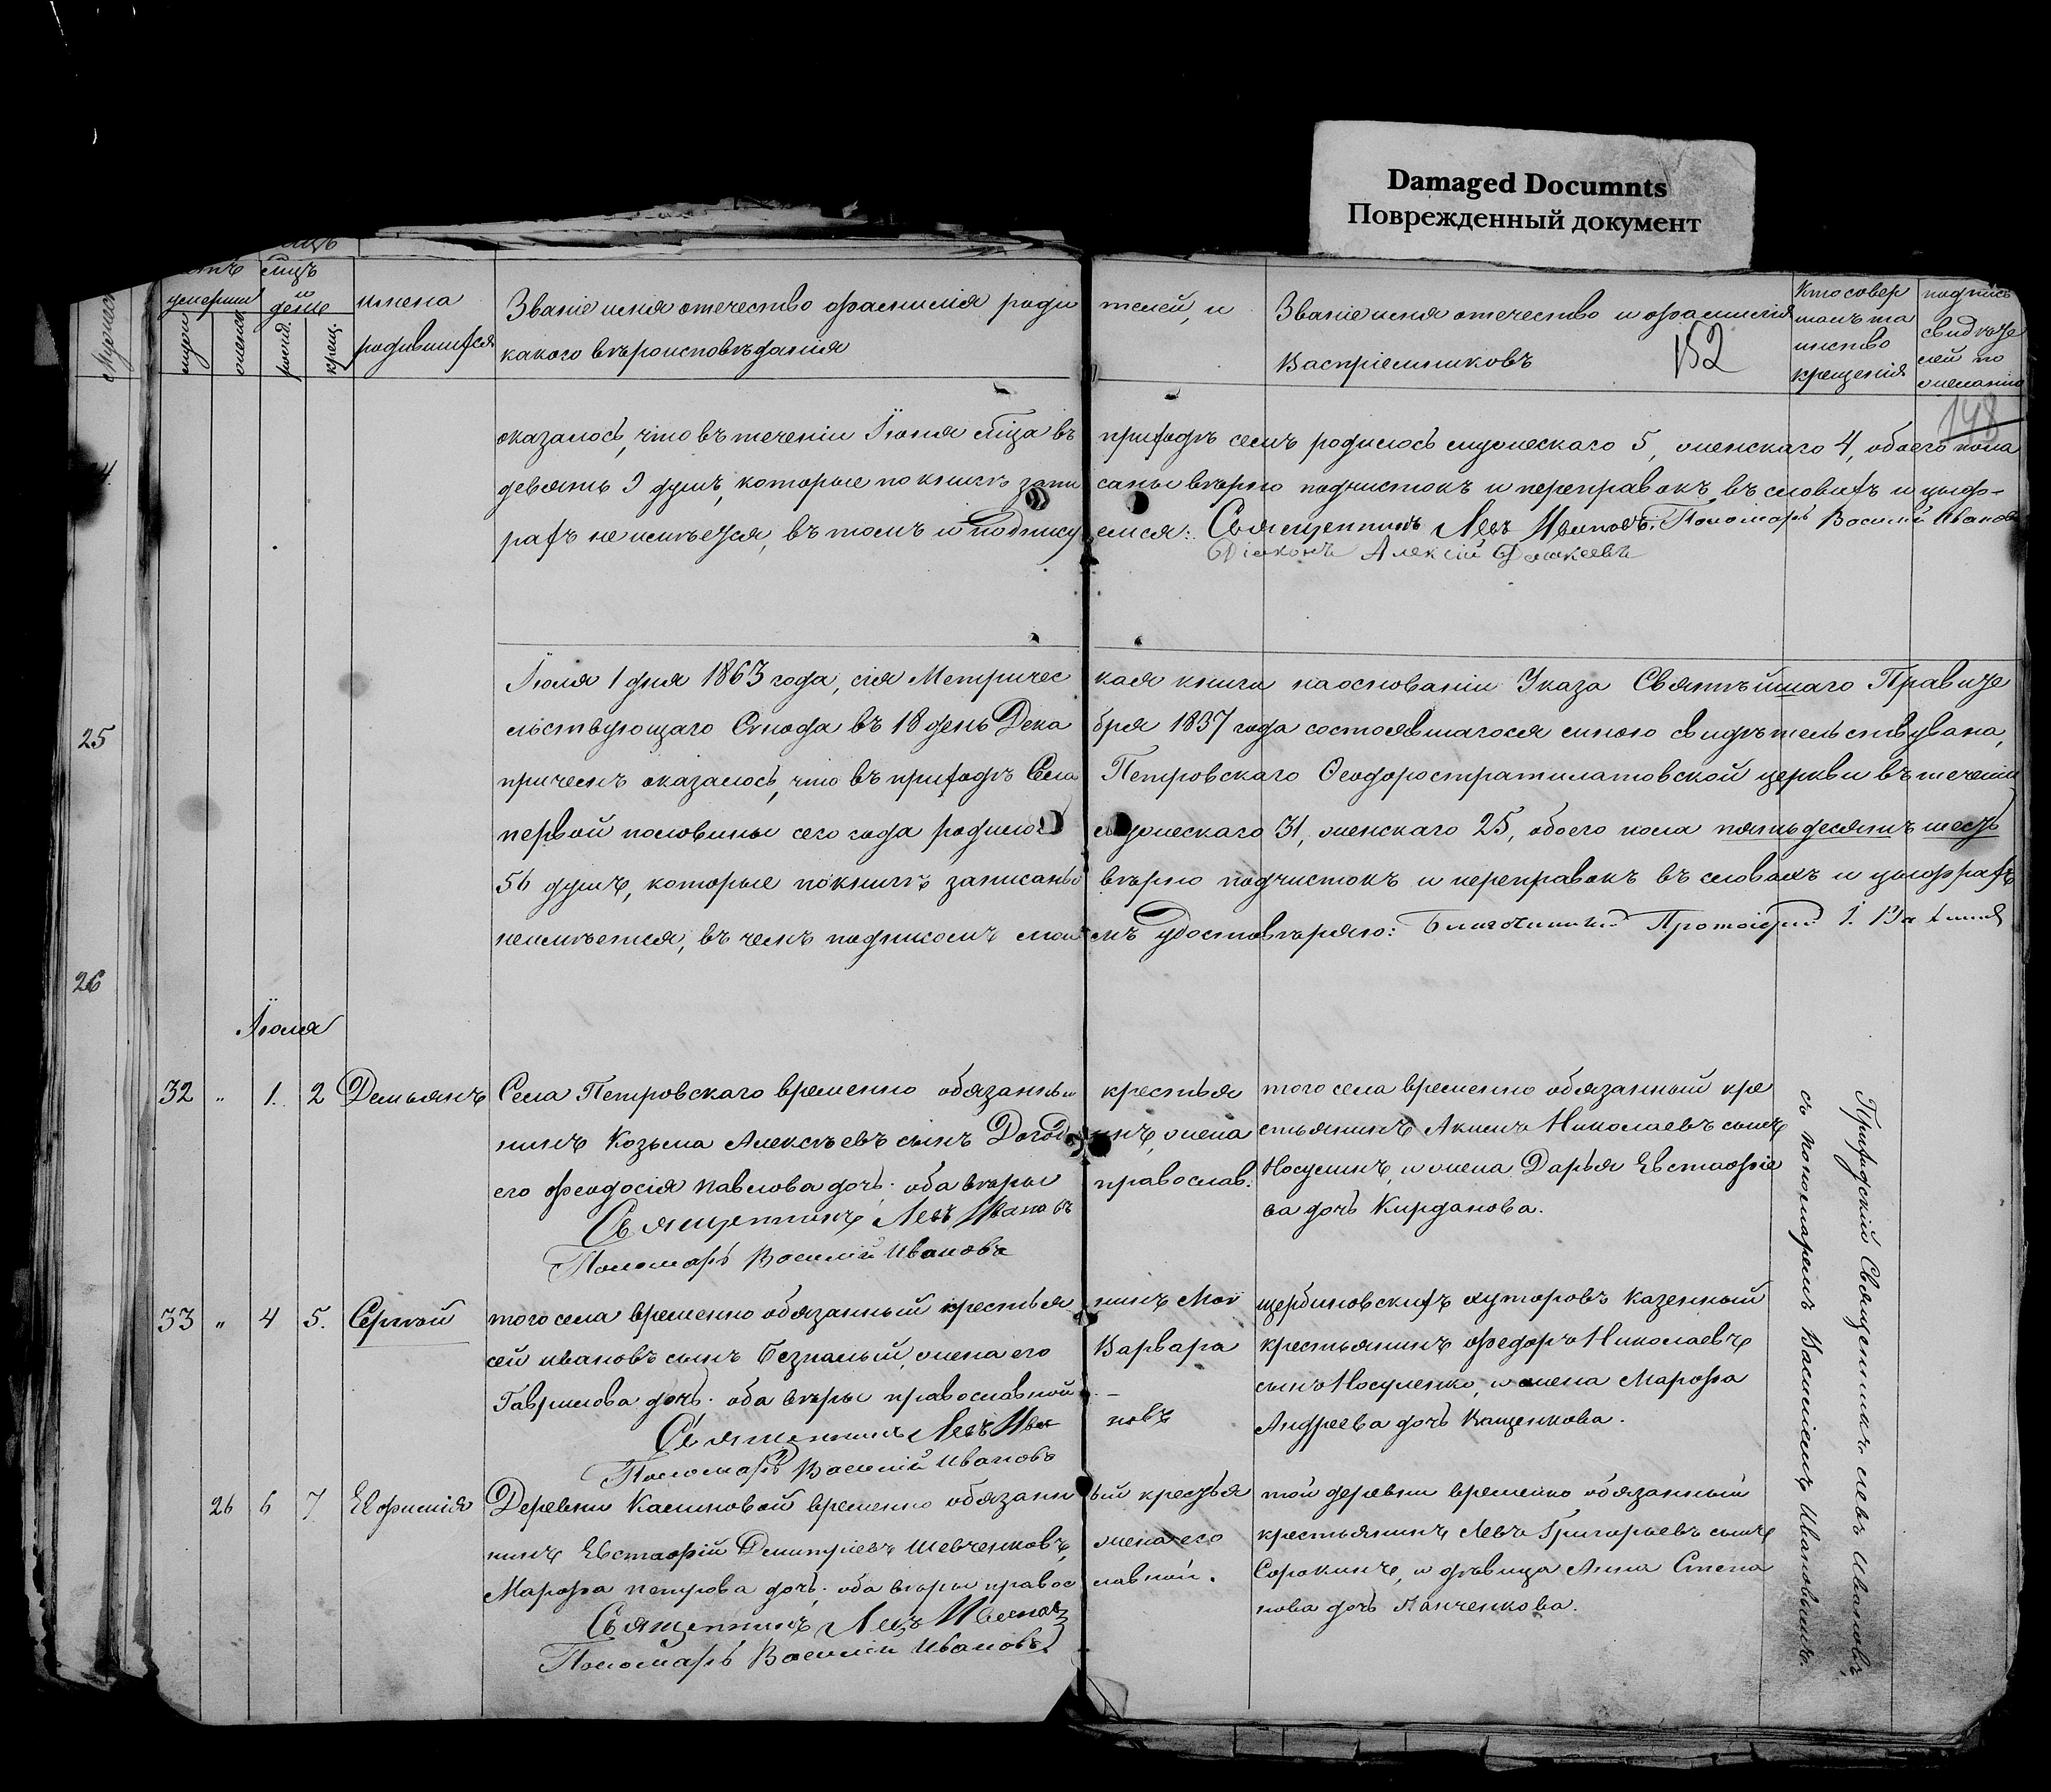 Damaged Documnts
Поврежденный документ
мѣсяцъ
и
день
мужеск
женск
рожд.
крещ.
имена
родившихся
Званіе имя отечество фамилія роди
телей, и
какого вѣроисповѣданія
Званіе имя отечество и фамилія
Воспріемниковъ
152
Кто совер
шалъ та
инство
крещенія
подпись
свидѣте
лей по
желанію
148
оказалось, что въ теченіи Іюня мѣсяца въ приходѣ семъ родилось мужескаго 5, женскаго 4, обоего пола
девять 9 душъ, которые по книгѣ запи саны вѣрно подчистокъ и переправокъ въ словахъ и цыф-
рахъ не имѣется, въ томъ и подпису емся: Священникъ Левъ Ивановъ. Пономарь Василій Ивановъ
Діаконъ Алексій
25
Іюля 1 дня 1863 года, сія Метричес кая книга на основаніи Указа Святѣйшаго Правите
льствующаго Синода въ 18 день Дека бря 1837 года состоявшагося мною свидѣтельствована,
причемъ оказалось, что въ приходѣ Села Петровскаго Ѳеодоростратилатовской церкви въ теченіи
первой половины сего года родилось мужескаго 31, женскаго 25, обоего пола пятьдесятъ шесть
56 душъ, которые по книгѣ записаны вѣрно подчистокъ и переправокъ въ словахъ и цыфрахъ
неимѣется, въ чемъ подписомъ мои мъ удостовѣряю: Благочинный Протоіерей І.
26
Іюля
32 " 1. 2 Демьянъ
Села Петровскаго временно обязанный крестья
нинъ Козьма Алексѣевъ сынъ жена
его Феодосія Павлова дочь. оба вѣры православ.
Священникъ Левъ Ивановъ
Пономарь Василій Ивановъ
того села временно обязанный кре
стьянинъ Акимъ Николаевъ сынъ
Носулинъ, и жена Дарья Евстафіе
ва дочь Кирданова.
Приходскій Священникъ Левъ Ивановъ,
съ пономаремъ Василіемъ Ивановымъ.
33 " 4 5. Сергѣй
того села временно обязанный крестья нинъ Мой
сей Ивановъ сынъ Безпалый, жена его Варвара
Гаврилова дочь. оба вѣры православной
Священникъ Левъ Ива новъ
Пономарь Василій Ивановъ
щербиновскихъ хуторовъ казенный
крестьянинъ Федоръ Николаевъ
сынъ Носуленко, и жена Марфа
Андреева дочь Кащенкова.
26 6 7 Евфимія
Деревни Калиновой временно обязанн ый крестья
нинъ Евстафій Димитріевъ Шевченковъ, жена его
Марфа Петрова дочь. оба вѣры правос лавной.
Священникъ Левъ Ивановъ
Пономарь Василій Ивановъ
той деревни временно обязанный
крестьянинъ Левъ Григорьевъ сынъ
Сорокинъ, и дѣвица Анна Степа
нова дочь Панченкова.